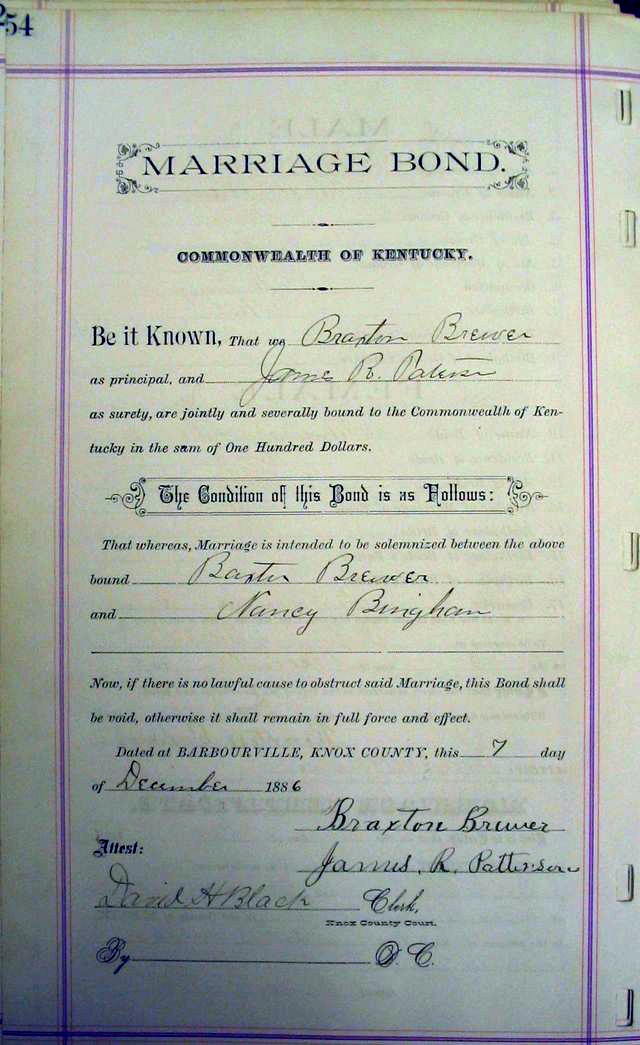 254
MARRIAGE BOND.
COMMONWEALTH OF KENTUCKY.
Be it Known, That we Braxton Brewer
as principal, and James R. Paterson
as surety, are jointly and severally bound to the Commonwealth of Ken-
tucky in the sum of One Hundred Dollars.
The Condition of this Bond is as Follows:
That whereas, Marriage is intended to be solemnized between the above
bound Baxter Brewer
and Nancy Bingham
Now, if there is no lawful cause to obstruct said Marriage, this Bond shall
be void, otherwise it shall remain in full force and effect.
Dated at BARBOURVILLE, KNOX COUNTY, this 7 day
of December 1886
Braxton Brewer
Attest:
James. R. Patterson
David H Black Clerk,
Knox County Court.
By D. C.